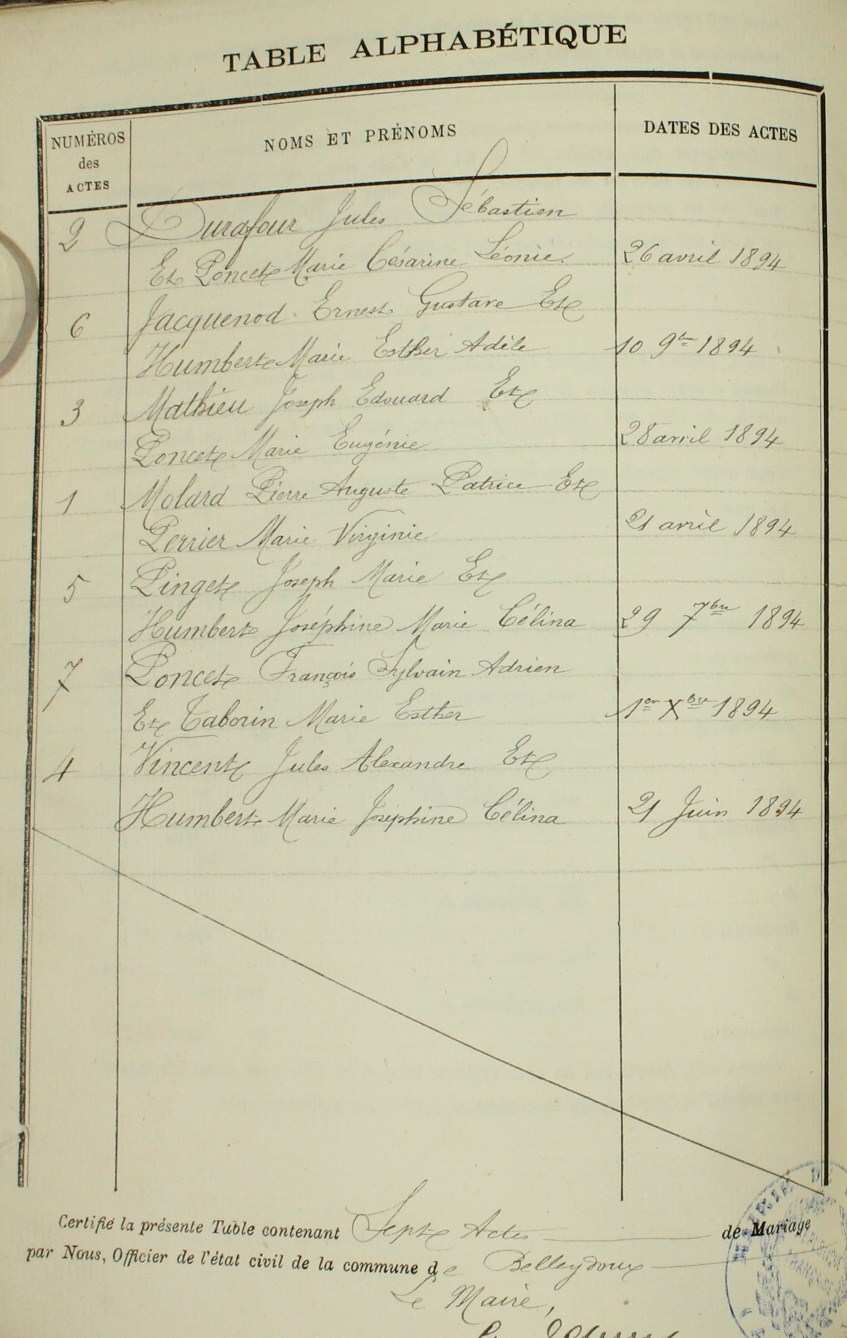 TABLE ALPHABÉTIQUE
NUMÉROS des ACTES
NOMS ET PRÉNOMS
DATES DES ACTES
2 Durafour Jules Sébastien
Et Poncet Marie Césarine Léonie 26 avril 1894
6 Jacquenod Ernest Gustave Et
Humbert Marie Esther Adèle 10 9bre 1894
3 Mathieu Joseph Edouard Et
Poncet Marie Eugénie 28 avril 1894
1 Molard Pierre Auguste Patrice Et
Perrier Marie Virginie 21 avril 1894
5 Pinget Joseph Marie Et
Humbert Joséphine Marie Célina 29 7bre 1894
7 Poncet François Sylvain Adrien
Et Taborin Marie Esther 1er Xbre 1894
4 Vincent Jules Alexandre Et
Humbert Marie Joséphine Célina 21 Juin 1894
Certifié la présente Table contenant Sept Actes de Mariage
par Nous, Officier de l'état civil de la commune de Belleydoux
Le Maire,